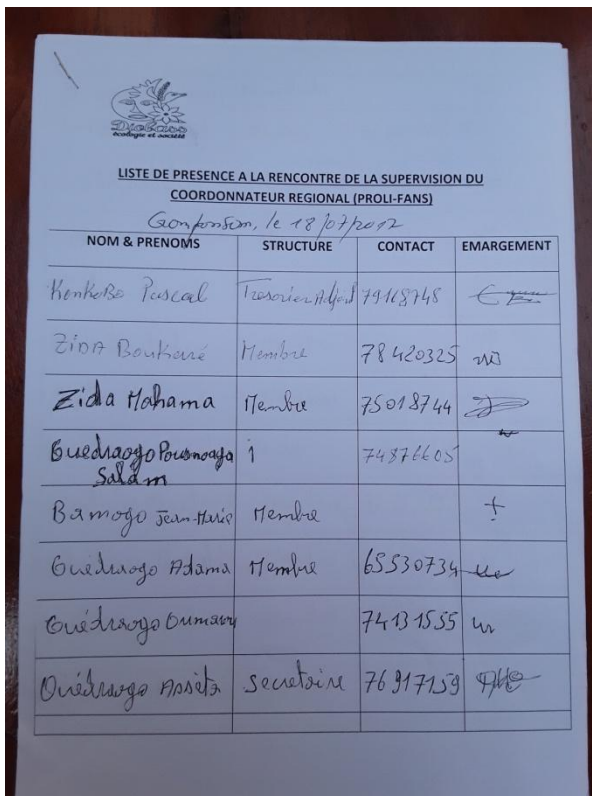 Diobass
écologie et société
LISTE DE PRESENCE A LA RENCONTRE DE LA SUPERVISION DU
COORDONNATEUR REGIONAL (PROLI-FANS)
le 18/07/2012
NOM & PRENOMS STRUCTURE CONTACT EMARGEMENT
KonKoBo Pascal Tresorier Adjoint 79168748
ZiDA Boukaré Membre 78420325
Zida Mahama Membre 75018744
Ouedraogo Pousnoaga 1 74876605
Salam
Bamogo Jean-Marie Membre +
Ouedraogo Adama Membre 65530734
Ouédraogo Oumarou 74131555
Ouédraogo Assèta Secretaire 76917159